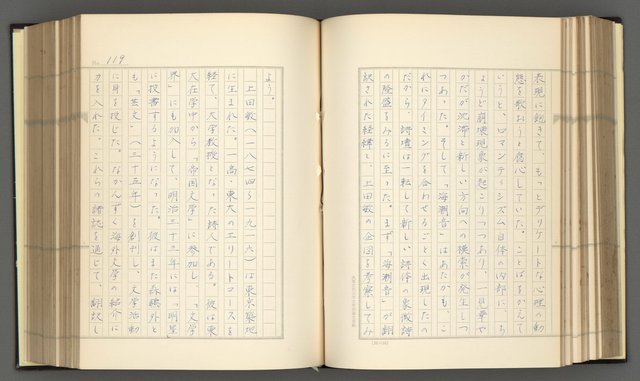 表現に飽きて、もっとデリケートな心理の動
態を歌おうと腐心していた。ことばをかえて
いうと、ロマンティシズム自体の内部に、ち
ょうど崩壊現象が起こりつつあり、一見華や
かだが沈滞と新しい方向への模索が発生しつ
つあった。そして「海潮音」はあたかも、こ
れにタイミングを合わせるごとく出現したの
だから、詩壇は一転して新しい詩体の象徴詩
の隆盛をみるに至った。まず、「海潮音」が翻
訳された経緯と、上田敏の企図を考察してみ
No. 119
よう。
上田敏(一八七四ら一九一六)は東京築地
に生まれた。一高・東大のエリートコースを
経て、大学教授となった詩人である。彼は東
大在学中から「帝国文学」に参加し、「文学
界」にも加入して、明治三十三年には「明星」
に投書するようになった。彼はまた森鴎外と
も「芸文」(三十五年)を創刊し、文学活動
に身を投じた。なかんずく海外文学の紹介に
力を入れた。これらの諸誌を通じて、翻訳し